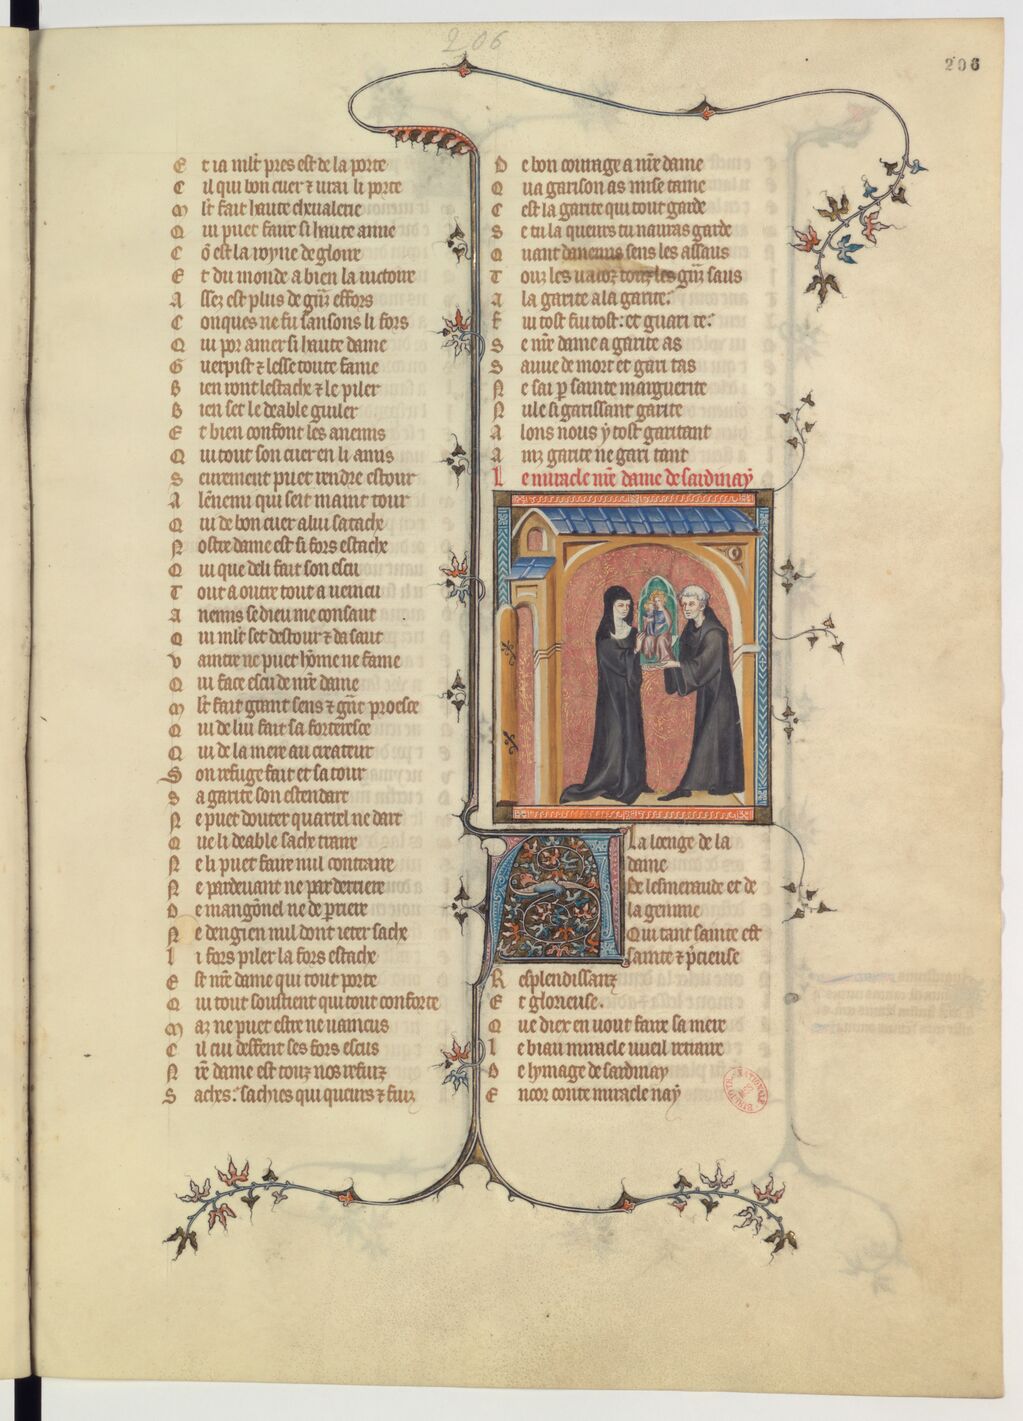 206
206
Et ia mlt pres est de la porte
Cil qui bon cuer ⁊ urai li porte
Mlt fait haute cheualerie
Qui puet faire si haute amie
Cō est la royne de gloire
Et du monde a bien la uictoire
Assez est plus de grāz effors
Conques ne fu sansons li fors
Qui por amer si haute dame
Guerpist ⁊ lesse toute fame
Bien ront lestache ⁊ le piler
Bien set le deable guiler
Et bien confont les anemis
Qui tout son cuer en li a mis
Seurement puet rendre estour
A lēnemi qui seit mainte tour
Qui de bon cuer a lui satache
Nostre dame est si fors estache
Qui que deli fait son escu
Tout a outre tout a uencu
Anemis se dieu me consaut
Qui mlt set destour ⁊ dasaut
Vaintre ne puet hōme ne fame
Qui face escu de nr̄e dame
Mlt fait grant sens ⁊ grāt proesce
Qui de lui fait sa forteresce
Qui de la mere au createur
Son refuge fait et sa tour
Sa garite son estendart
Ne puet douter quarrel ne dart
Que li deable sache traire
Ne li puet faire nul contraire
Ne par deuant ne par derriere
De mangōnel ne de perriere
Ne dengien nul dont ieter sache
Li fors piler la fors estache
Est nr̄e dame qui tout porte
Qui tout soustient qui tout conforte
Maz ne puet estre ne uaincus
Cil cui deffent ses fors escus
Nr̄e dame est touz nos refuiz
Saches: sachies qui queurs ⁊ fuiz
De bon courage a nr̄e dame
Qua garison as mise tame
Cest la garite qui tout garde
Se tu la queurs tu nauras garde
Quant danemis sens les assaus
Touz les uaioz touz les grāz saus
A la garite a la garite.
Fui tost fui tost: et guari te:
Se nr̄e dame a garite as
Sauue de mort et gari tas
Ne sai p̄ sainte marguerite
Nule si garissant garite
Alons nous y tost garitant
Ainz garite ne gari tant
Le miracle nr̄e dame de sardinay
A La loenge de la
dame
De lesmeraude et de
la gemme
Qui tant sainte est
sainte ⁊ p̄cieuse
Resplendissanz
Et glorieuse.
Que diex en uout faire sa mere
Le biau miracle uueil retraire
De lymage de sardinay
Encor conte miracle nay